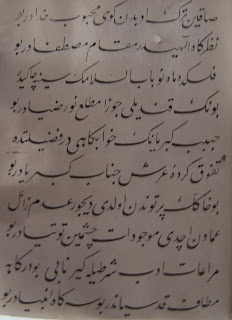 صاقین ترک ادبدن کوی محبوب خدادر بو
نظرگاه الهیدر مقام مصطفادر بو
فلکده ماه نو باب السلامک سینه چاکیدر
بونک قندیلی جوزا مطلع نور ضیادر بو
حبیب کبریانک خوابکاهی در فضیلتده
تفوق کردهٔ عرش جناب کبریادر بو
بو خاکک پرتوندن اولدی دیجور عدم زائل
عمادن اچدی موجودات چشمین توتیادر بو
مراعات ادب شرطیله کیر نابی بو درکاهه
مطاف قدسیاندر بوسه کاه انبیادر بو